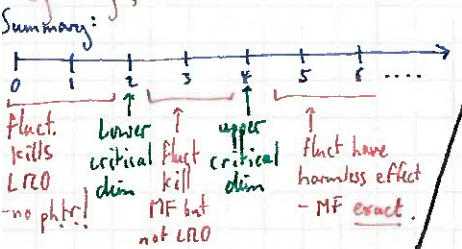 Summary:
0 1 2 3 4 5 6 .....
fluct. kills LRO - no phtr!
Lower critical dim
fluct kill MF but not LRO
upper critical dim
fluct have harmless effect - MF exact.